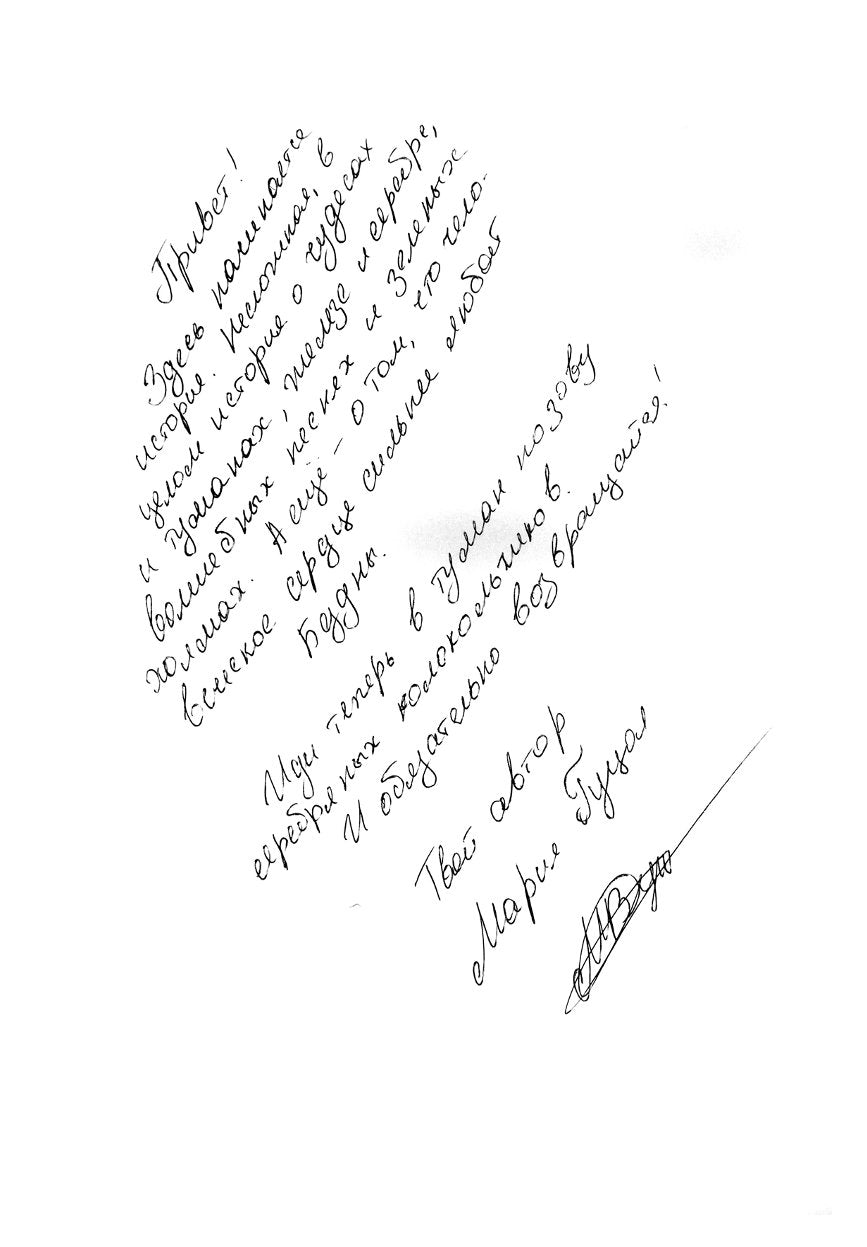 Привет!
Здесь начинается
история. Несложная, в
целом история о чудесах
и туманах, железе и серебре,
волшебных песнях и зеленых
холмах. А ещё – о том, что чело-
веческое сердце сильнее любой
бездны.
Иди теперь в туман по зову
серебряных колокольчиков.
И обязательно возвращайся!
Твой автор
Мария Гуцол